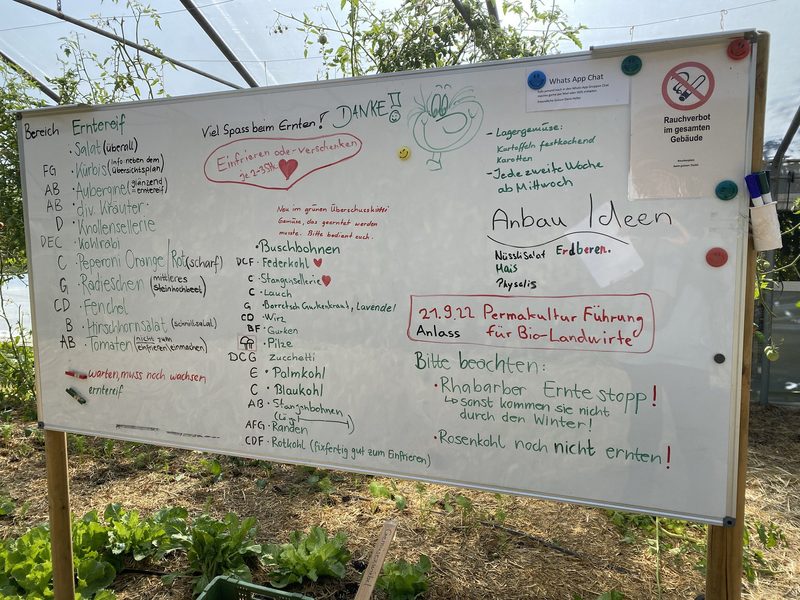 Bereich Erntereif
Salat (überall)
FG Kürbis (Info neben dem Übersichtsplan)
AB Aubergine (glänzend = erntereif)
AB div. Kräuter
D Knollensellerie
DEC Kohlrabi
C Peperoni Orange/Rot (scharf)
G Radieschen (mittleres Steinhochbeet)
CD Fenchel
B Hirschhornsalat (Schnittsalat)
AB Tomaten (nicht zum einfrieren/einmachen)
warten, muss noch wachsen
erntereif
Viel Spass beim Ernten! DANKE!
Einfrieren ode-verschenken
je 2-3 Stk.
Neu im grünen Überschusskistli
Gemüse, das geerntet werden
musste. Bitte bedient euch.
Buschbohnen
DCF Federkohl
C Stangensellerie
C Lauch
G Borretsch Gurkenkraut, Lavendel
CD Wirz
BF Gurken
Pilze
DCG Zucchetti
E Palmkohl
C Blaukohl
AB Stangenbohnen
AFG Randen
CDF Rotkohl (fixfertig gut zum Einfrieren)
- Lagergemüse:
Kartoffeln festkochend
Karotten
- Jede zweite Woche
ab Mittwoch
Whats App Chat
Rauchverbot
im gesamten
Gebäude
Anbau Ideen
Nüsslisalat Erdberen.
Mais
Physalis
21.9.22 Permakultur Führung
Anlass für Bio-Landwirte
Bitte beachten:
Rhabarber Ernte stopp!
↳ sonst kommen sie nicht
durch den Winter!
Rosenkohl noch nicht ernten!